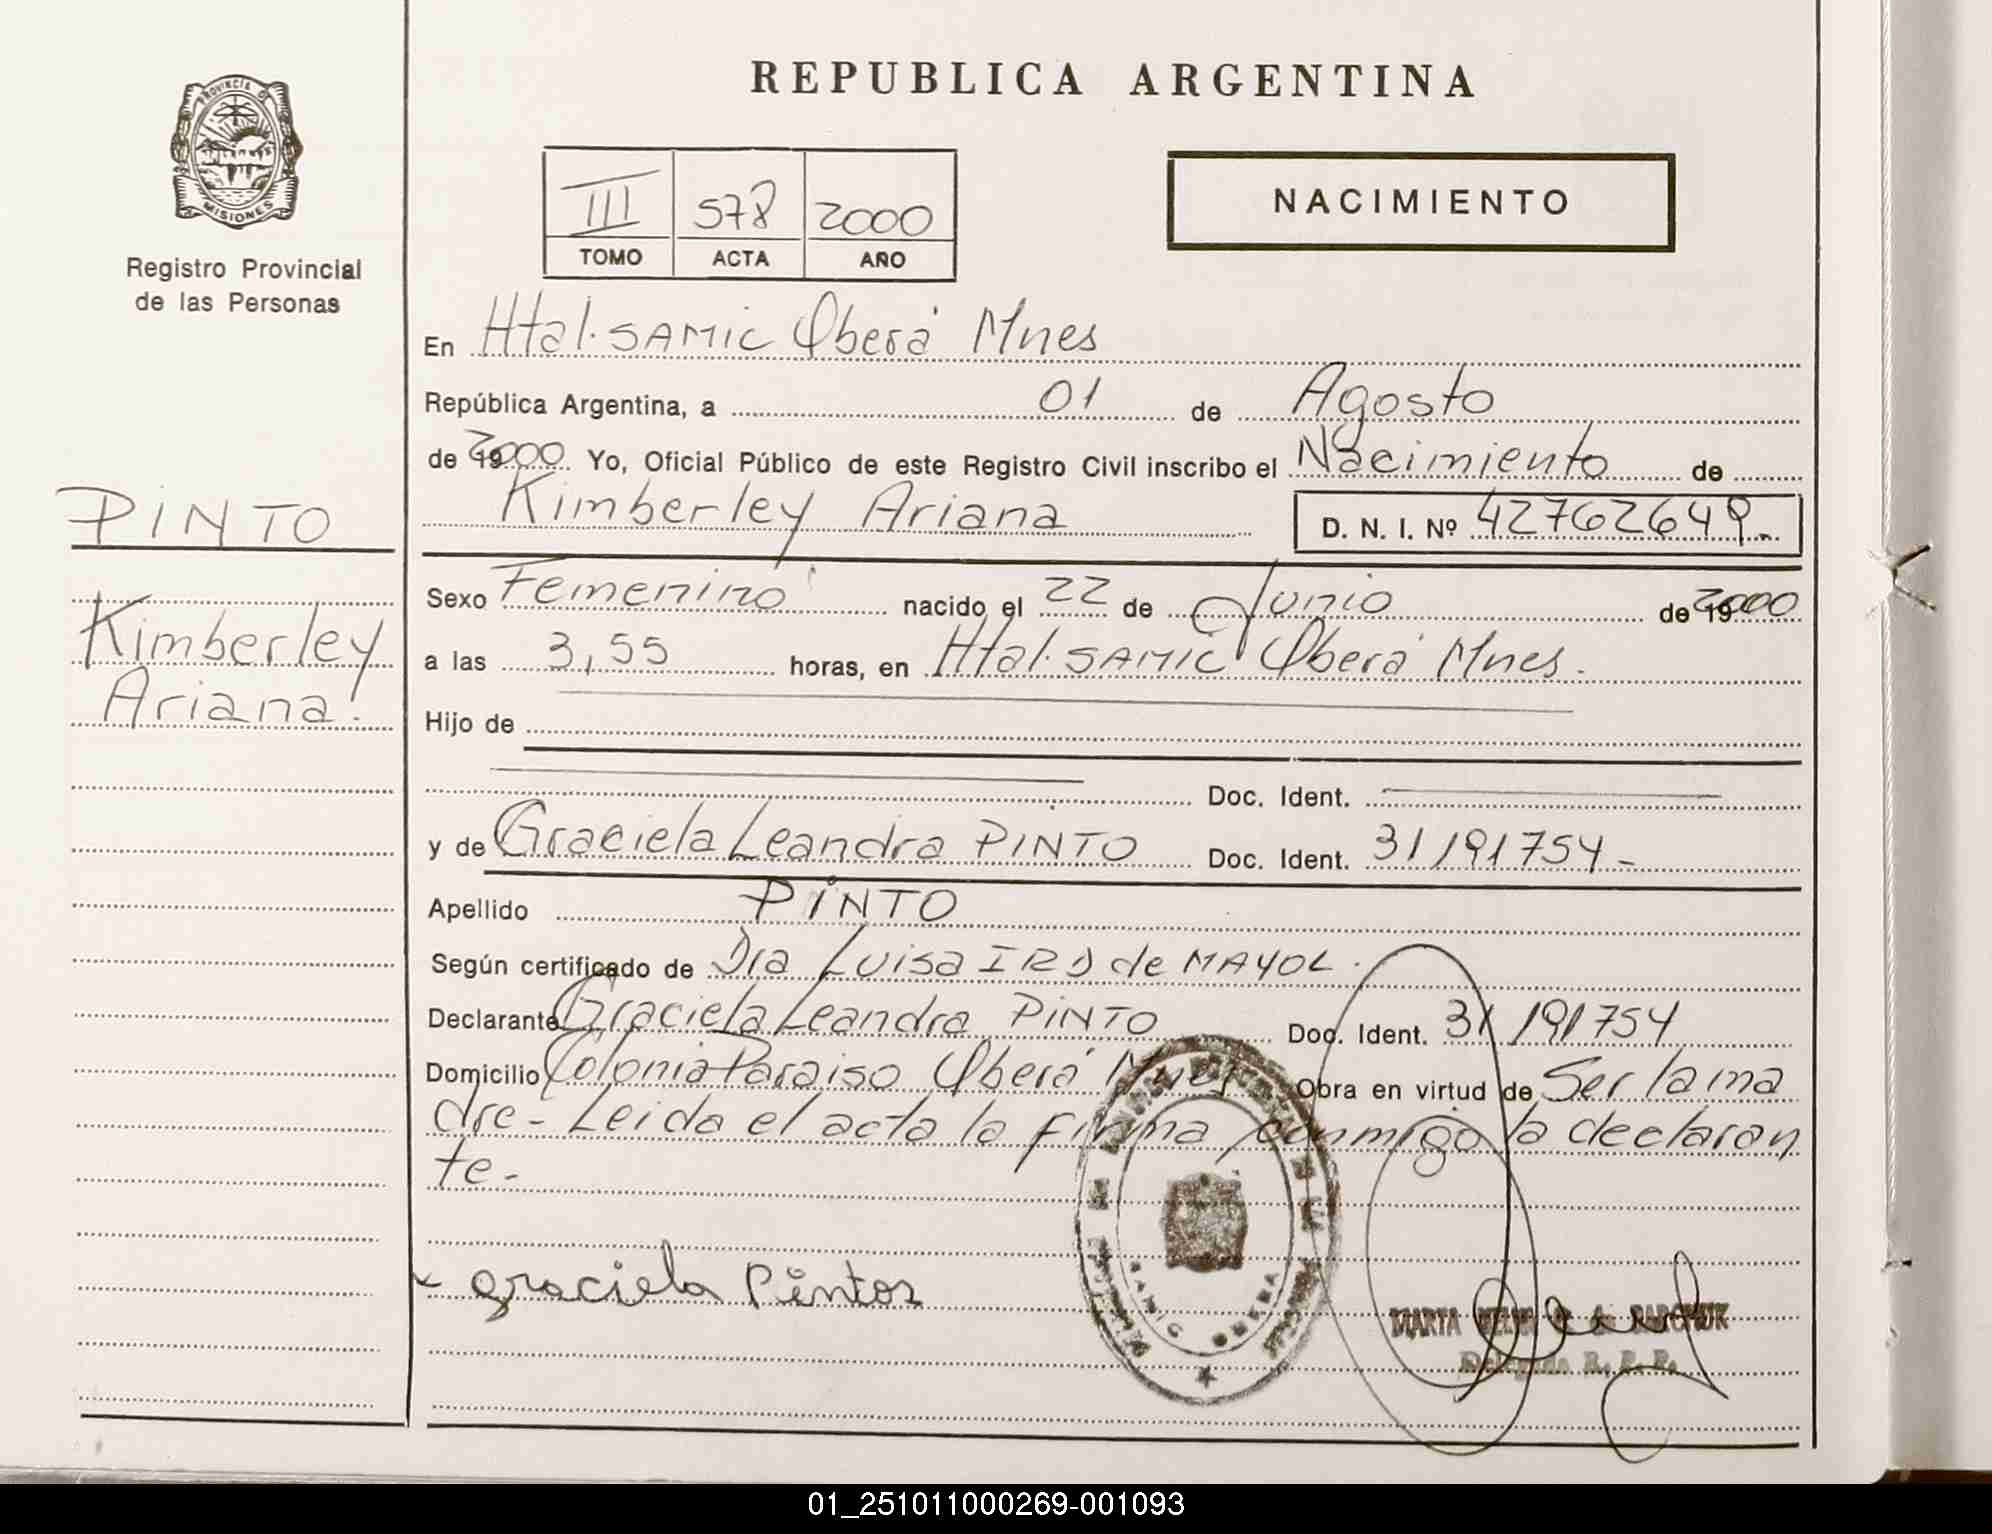 REPUBLICA ARGENTINA
PROVINCIA DE
MISIONES
Registro Provincial
de las Personas
III 578 2000
TOMO ACTA AÑO
NACIMIENTO
En Htal. SAMIC Oberá Mnes
República Argentina, a 01 de Agosto
de 2000 Yo, Oficial Público de este Registro Civil inscribo el Nacimiento de
Kimberley Ariana D. N. I. Nº 42762649.-
PINTO
Kimberley
Ariana.
Sexo Femenino nacido el 22 de Junio de 2000
a las 3,55 horas, en Htal. SAMIC Oberá Mnes.
Hijo de
Doc. Ident.
y de Graciela Leandra PINTO Doc. Ident. 31191754-
Apellido PINTO
Según certificado de Dra Luisa de MAYOL.
Declarante Graciela Leandra PINTO Doc. Ident. 31191754
Domicilio Colonia Paraiso Oberá Mnes Obra en virtud de Ser la ma
dre- Leida el acta la firma conmigo la declaran
te-
Graciela Pintos
SAMIC OBERA
MARTA
Delegada R. P. P.
01_251011000269-001093